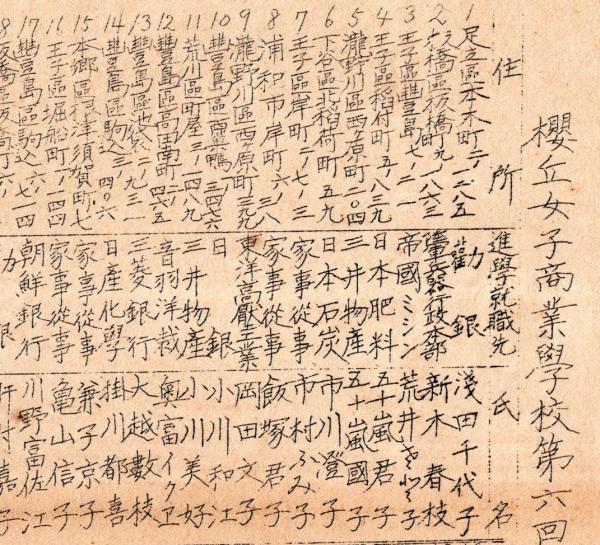 櫻丘女子商業學校第六回
住所 進學就職先 氏名
1 足立區本木町二ノ一二八五 勸銀 淺田千代子
2 板橋區板橋町九ノ一八六三 新木春枝
3 王子區豊島七ノ二一 帝國ミシン 荒井きみ子
4 王子區稻付町五ノ八三九 日本肥料 五十嵐君子
5 瀧野川區西ヶ原町二〇四 三井物産 五十嵐國子
6 下谷區北稻荷町五九 日本石炭 市川澄子
7 王子區岸町二ノ三 家事從事 市村ふみ子
8 浦和市岸町六ノ八 家事從事 飯塚君子
9 瀧野川區西ヶ原町三九九 東洋高壓工業 岡田文子
10 豊島區巣鴨ノ三四七六 日銀 小川和江
11 荒川區町屋三ノ一四八九 三井物産 小川美好
12 豊島區高田南町二ノ四六五 音羽洋裁 奥富イク子
13 豊島區池袋二ノ九三一 三菱銀行 大越數枝
14 豊島區駒込三ノ四〇六 日産化學 掛川都喜
15 本郷區根津須賀町七 家事從事 兼子京子
16 王子區堀船町一ノ六四 家事從事 亀山信子
17 豊島區駒込六ノ七一四 朝鮮銀行 川野富佐江